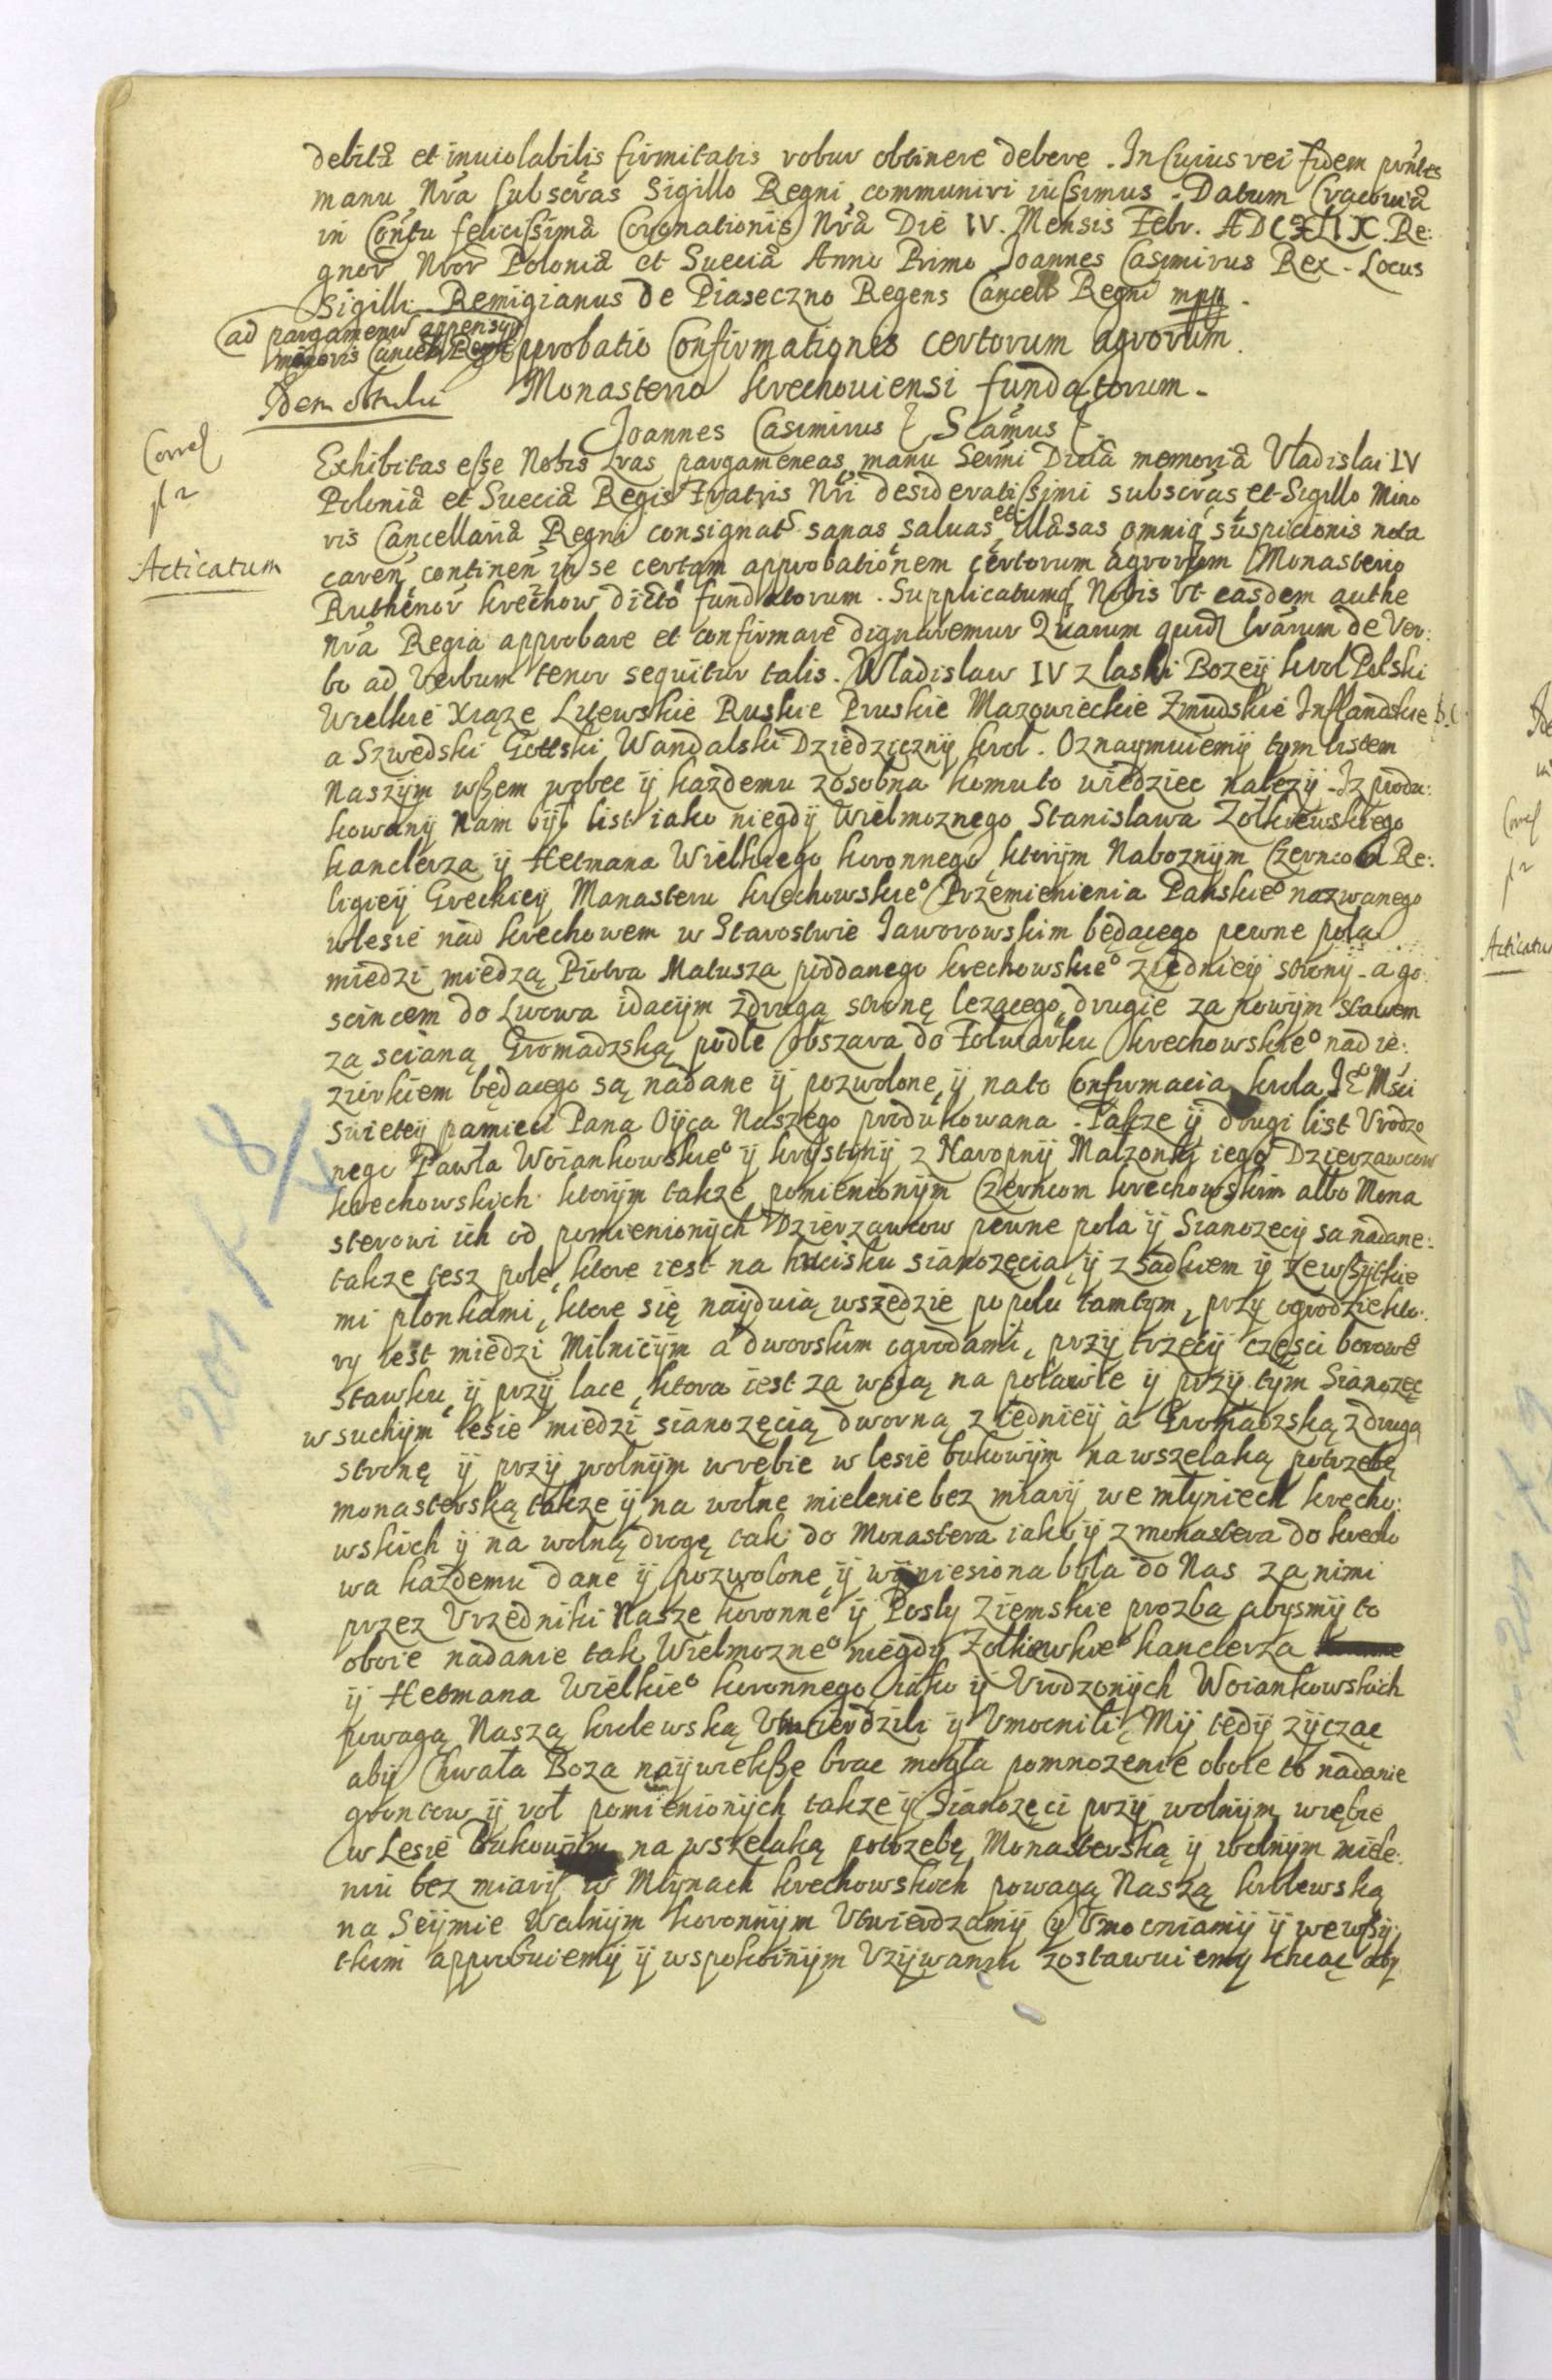 debitæ et inuiolabilis firmitatis robur obtinere debere. In Cuius rei fidem pñtes
manu Nrã subscrãs Sigillo Regni communiri iussimus. Datum Cracouiæ
in Contu felicissimæ Coronationis Nræ Die IV. Mensis Febr. Re:
gnor Nror Poloniæ et Sueciæ Anno Primo Joannes Casimirus Rex. Locus
Sigilli Remigianus de Piaseczno Regens Cancell Regni mpp.
ad pargamenu appensu
minoris Cancell Regni
Approbatio Confirmationis certorum agrorum
Idem obtulu
Monasterio Krechouiensi fundatorum.
Joannes Casimirus
Correl
Exhibitas esse Nobis Lras pargameneas manu Sermi Diuæ memoriæ Vladislai IV
Poloniæ et Sueciæ Regis Fratris Nri desideratissimi subscras et Sigillo Mino
ris Cancellariæ Regni consignat sanas saluas et illæsas omniq suspicionis nota
Acticatum
caren continen in se certam approbationem certorum agrorum Monasterio
Ruthenor Krechow dicto fundatorum. Supplicatumq Nobis Vt easdem authe
Nra Regia approbare et confirmare dignaremur Quarum quid lrarum de Ver:
bo ad Verbum tenor sequitur talis. Wladislaw IV z laski Bozey Krol Polski
Wielkie Xiąze Litewskie Ruskie Pruskie Mazowieckie Zmudskie Inflandskie
a Szwedski Gottski Wandalski Dziedziczny Krol. Oznaymuiemy tym listem
Naszym wszem wobec ÿ kazdemu zosobna komuto wiedziec nalezÿ. Iz produ:
kowanÿ Nam bÿł list iako niegdÿ Wielmoznego Stanislawa Zolkiewskiego
kanclerza ÿ Hetmana Wielkiego koronnego, ktorÿm Naboznÿm Czerncom Re:
ligieÿ Greckieÿ Manasteru krechowskie° Przemienienia Panskie° nazwanego
wlesie nad krechowem w Starostwie Jaworowskim będącego pewne pola
miedzi miedzą Piotra Matusza poddanego krechowskie° ziedniey stronÿ. a go
scincem do Lwowa idacÿm zdrugą stronę lezącego drugie za nowÿm stawem
za scianą Gromadzską podle obszara do Folwarku krechowskie° nad ie:
zirkiem będacego są nadane ÿ pozwolone, ÿ nato Confirmacia krola JE° Mści
Swieteÿ pamieci Pana Oÿca Naszego produkowana. Takze ÿ drugi list Vrodzo
nego Pawła Woiankowskie° ÿ krÿstÿnÿ z Haropnÿ Malzonki iego Dzierzawcow
krechowskich ktorÿm takze pomienionÿm Czerncom krechowskim albo Mona
sterowi ich od pomienionÿch Dzierzawcow pewne pola ÿ Sianozecÿ sa nadane:
takze tesz pole, ktore iest na hucisku sianozęcią, ÿ z sadkiem ÿ zewszÿtkie
mi płonkami, ktore się naÿduią wszedzie po polu tamtym, przy ogrodzie kto:
ry iest miedzi Milnicÿm a dworskim ogrodami, przÿ trzecÿ częsci borowe
stawku, ÿ przÿ lace, ktora iest za wsią na poławie ÿ przÿ tym Sianozęc
w suchÿm lesie miedzi sianozęcią dworną z iednieÿ a Gromadzską zdrugą
stronę ÿ przÿ wolnÿm wrębie w lesie bukowÿm na wszelaką potrzebę
monasterską takze ÿ na wolne mielenie bez miarÿ we młyniech krecho:
wskich ÿ na wolną drogę tak do Monastera iako ÿ z monastera do krecho
wa kazdemu dane ÿ pozwolone, ÿ wÿniesiona była do Nas za nimi
przez Vrzedniki Nasze koronne ÿ Posly Ziemskie prozba abysmÿ to
oboie nadanie tak Wielmozne° niegdy Zołkiewskie° kanclerza
ÿ Hetmana Wielkie° koronnego iako ÿ Vrodzonÿch Woiankowskich
powagą Naszą krolewską Vtwierdzili ÿ Vmocnili, Mÿ tedÿ zÿcząc
abÿ Chwała Boza naÿwieksze brac mogła pomnozenie oboie to nadanie
grontow ÿ rol pomienionÿch takze ÿ Sianozęci przÿ wolnÿm wrębie
w Lesie Bukowÿm na wszelaką potrzebę Monasterską ÿ wolnÿm miele:
niu bez miarÿ w Młÿnach krechowskich powagą Naszą krolewską
na Seÿmie Walnÿm koronnÿm Vtwierdzamÿ ÿ Vmocniamÿ ÿ we wszÿ:
tkim approbuiemÿ ÿ wspokoinÿm Vzÿwaniu zostawuiemy chcąc aby